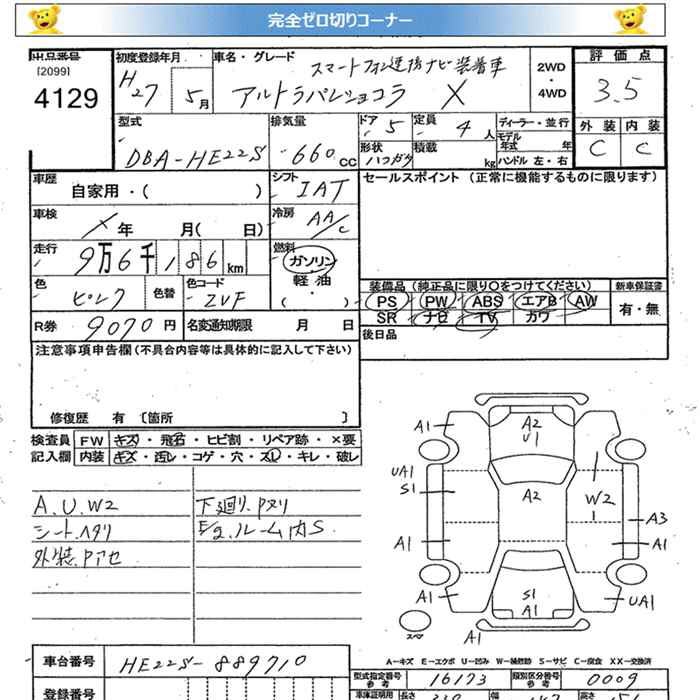 完全ゼロ切りコーナー
出品番号
[2099]
4129
初度登録年月
H27 5月
車名・グレード
スマートフォン連携ナビ装着車
アルトラパンショコラ X
2WD
・
4WD
評価点
3.5
外装 内装
C C
型式
DBA-HE22S
排気量
660cc
ドア 5
定員 4人
形状
積載 kg
ディーラー・並行
モデル年式 年
ハンドル 左・右
車歴
自家用・( )
シフト
IAT
車検
年 月( 日)
冷房
AA/C
走行
9万6千186km
燃料
ガソリン・
軽油・
( )
色
ピンク
色替
色コード
ZVF
R券 9070円
名変通知期限 月 日
セールスポイント (正常に機能するものに限ります)
装備品 (純正品に限り○をつけてください)
PS PW ABS エアB AW
SR ナビ TV カワ
新車保証書
有・無
後日品
注意事項申告欄(不具合内容等は具体的に記入して下さい)
修復歴 有 〔箇所 〕
検査員記入欄
FW キズ・飛石・ヒビ割・リペア跡・×要
内装 キズ・汚レ・コゲ・穴・スレ・キレ・破レ
A.U.W2
シートヘタリ
外装.Pアセ
下廻り.Pヌリ
E/gルーム内S
A1
A2
U1
UA1
S1
A2
W2
A3
A1
A1
S1
A1
A1
UA1
スペ
A1
A-キズ E-エクボ U-凹み W-補修跡 S-サビ C-腐食 XX-交換済
車台番号 HE22S-889710
型式指定番号 参考 16173
類別区分番号 参考 0009
登録番号
車庫証明用
長さ
幅
高さ